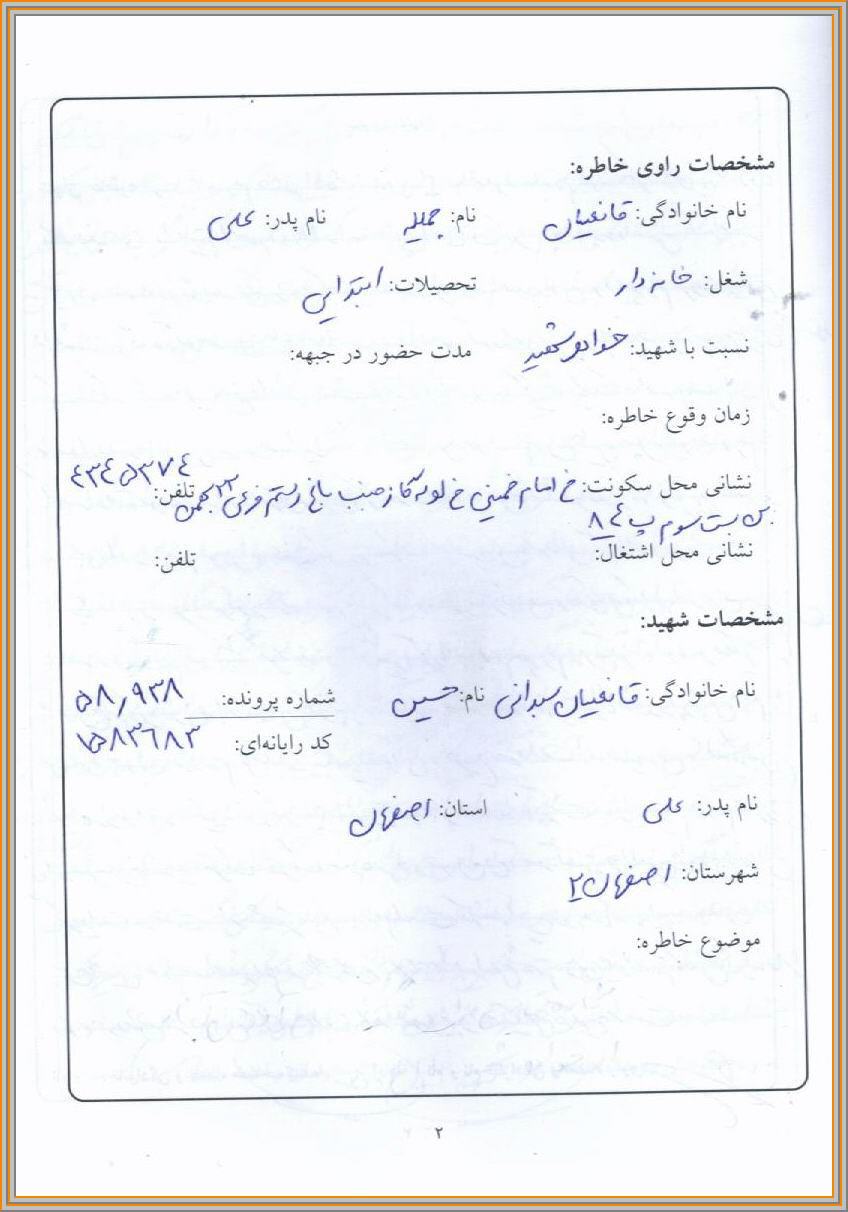 مشخصات راوی خاطره:
نام خانوادگی: قانعیان نام: جمیله نام پدر: علی
شغل: خانه دار تحصیلات: ابتدایی
نسبت با شهید: خواهر شهید مدت حضور در جبهه:
زمان وقوع خاطره:
نشانی محل سکونت: خ امام خمینی خ لوله گاز جنب باغ رستم فرعی ۲۳ بهمن تلفن: ۴۳۴۵۳۷۴
بن بست سوم پ ۸۴
نشانی محل اشتغال: تلفن:
مشخصات شهید:
نام خانوادگی: قانعیان سبدانی نام: حسین شماره پرونده: ۵۸٫۹۳۸
کد رایانه‌ای: ۱۵۸۳۶۸۳
نام پدر: علی استان: اصفهان
شهرستان: اصفهان ۲
موضوع خاطره:
۲